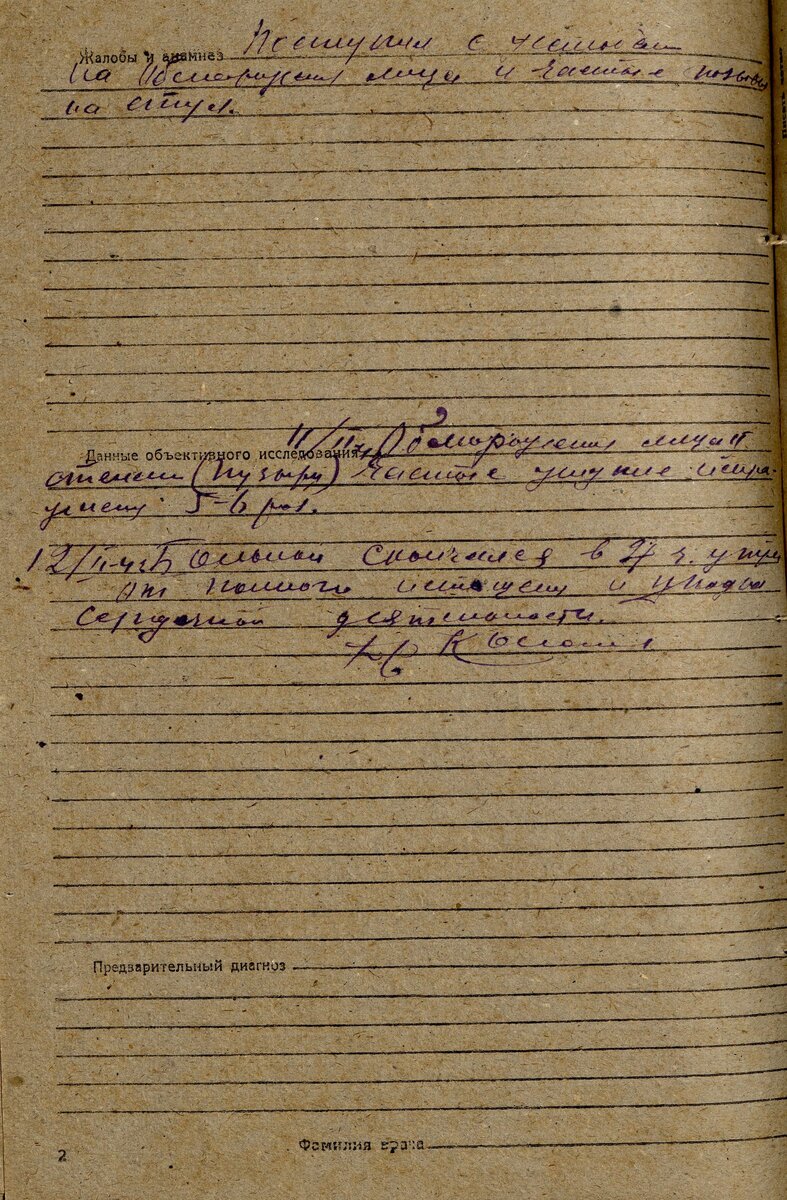 Жалобы и анамнез Поступил с жалобами
на обморожение лица и частые позывы
на стул.
Данные объективного исследования 11/II Обморожения лица II
степени (пузыри) частые
5-6 раз.
12/II Больной скончался в 2 ч. утра
от полного истощения и упадка
сердечной деятельности.
Предварительный диагноз
Фамилия врача
2